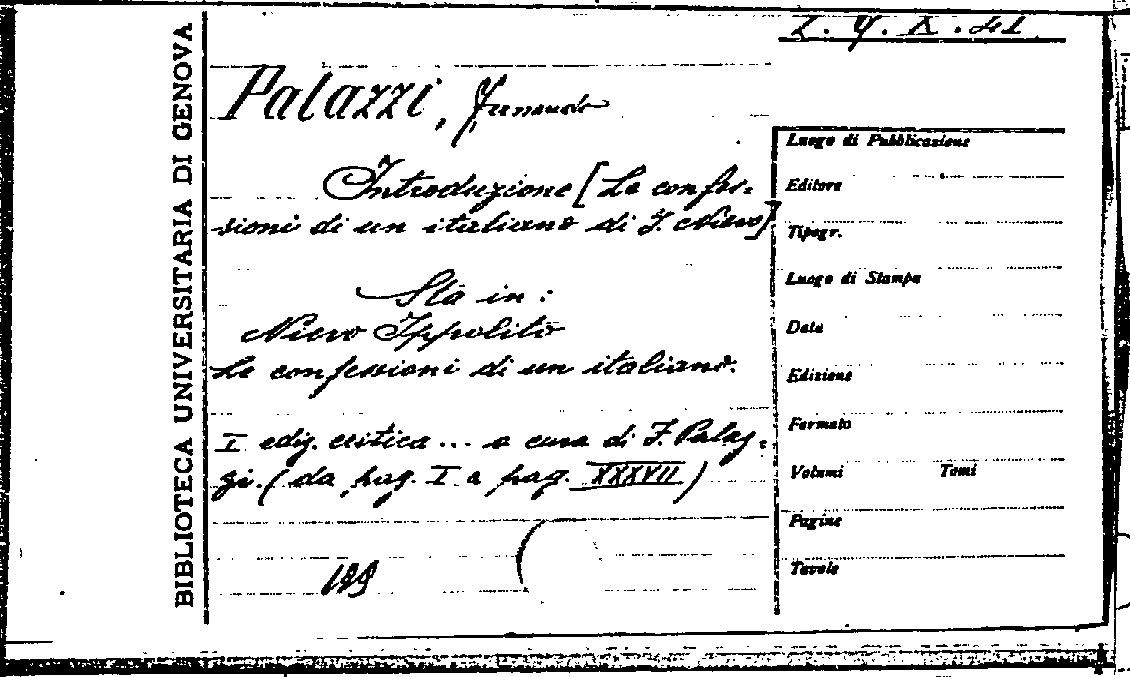 BIBLIOTECA UNIVERSITARIA DI GENOVA
Palazzi, Fernando
Introduzione [Le confes-
sioni di un italiano di I. Nievo]
Sta in:
Nievo Ippolito
Le confessioni di un italiano.
I ediz. critica ... a cura di F. Palaz-
zi. (da pag. I a pag. XXXVII)
Luogo di Pubblicazione
Editore
Tipogr.
Luogo di Stampa
Data
Edizione
Formato
Volumi Tomi
Pagine
Tavole